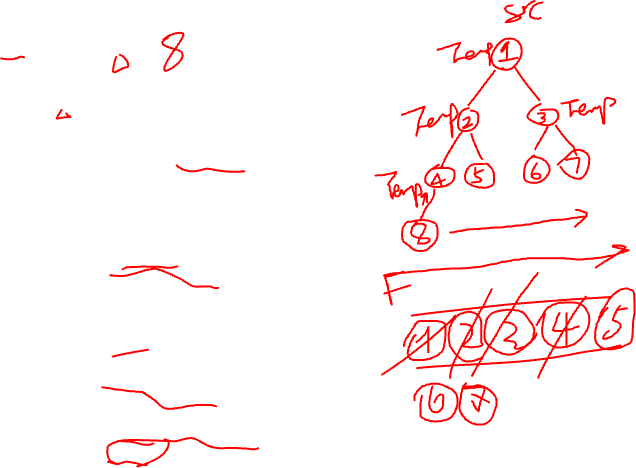 src
8
Temp 1
Temp 2
3 Temp
Temp 4 5 6 7
8
F
1 2 3 4 5
6 7